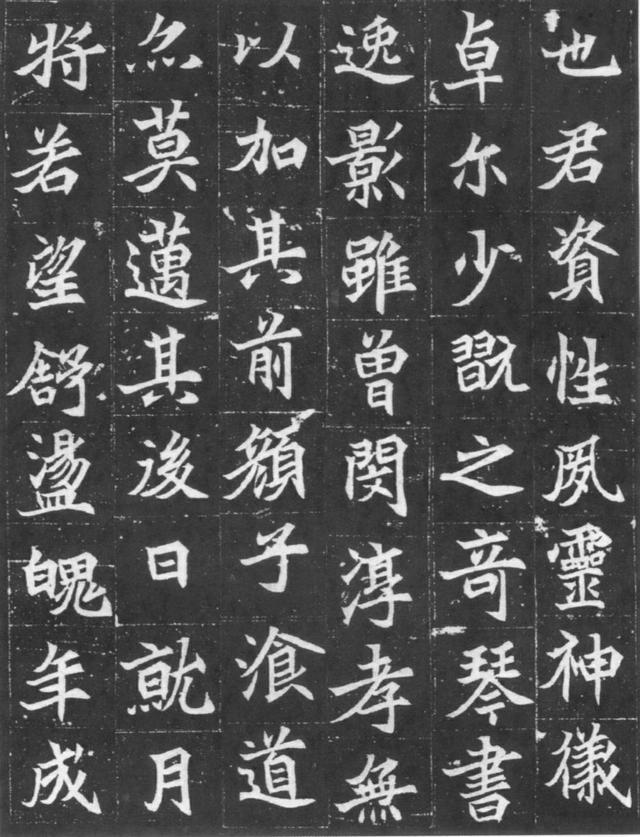 也君資性夙靈神儀
卓尔少翫之竒琴書
逸影雖曾閔淳孝無
以加其前顏子湌道
尒莫邁其後日就月
將若望舒盪魄年成